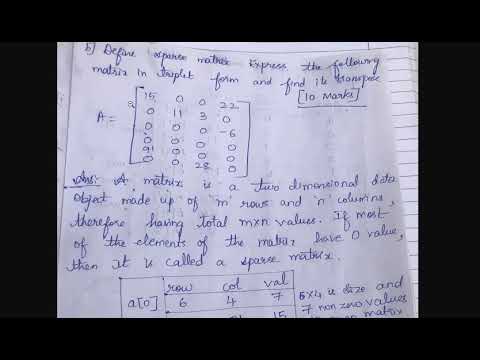 b) Define sparse matrix Express the following
matrix in triplet form and find its transpose
[10 Marks]
a
15 0 0 22
0 11 3 0
A = 0 0 0 -6
0 0 0 0
91 0 0 0
0 0 28 0
Ans: A matrix is a two dimensional data
Object made up of 'm' rows and 'n' columns,
therefore having total m×n values. If most
of the elements of the matrix have 0 value,
then It is called a sparse matrix.
row col val
a[0] 6 4 7
6×4 is size and
7 non zero values
15
matrix